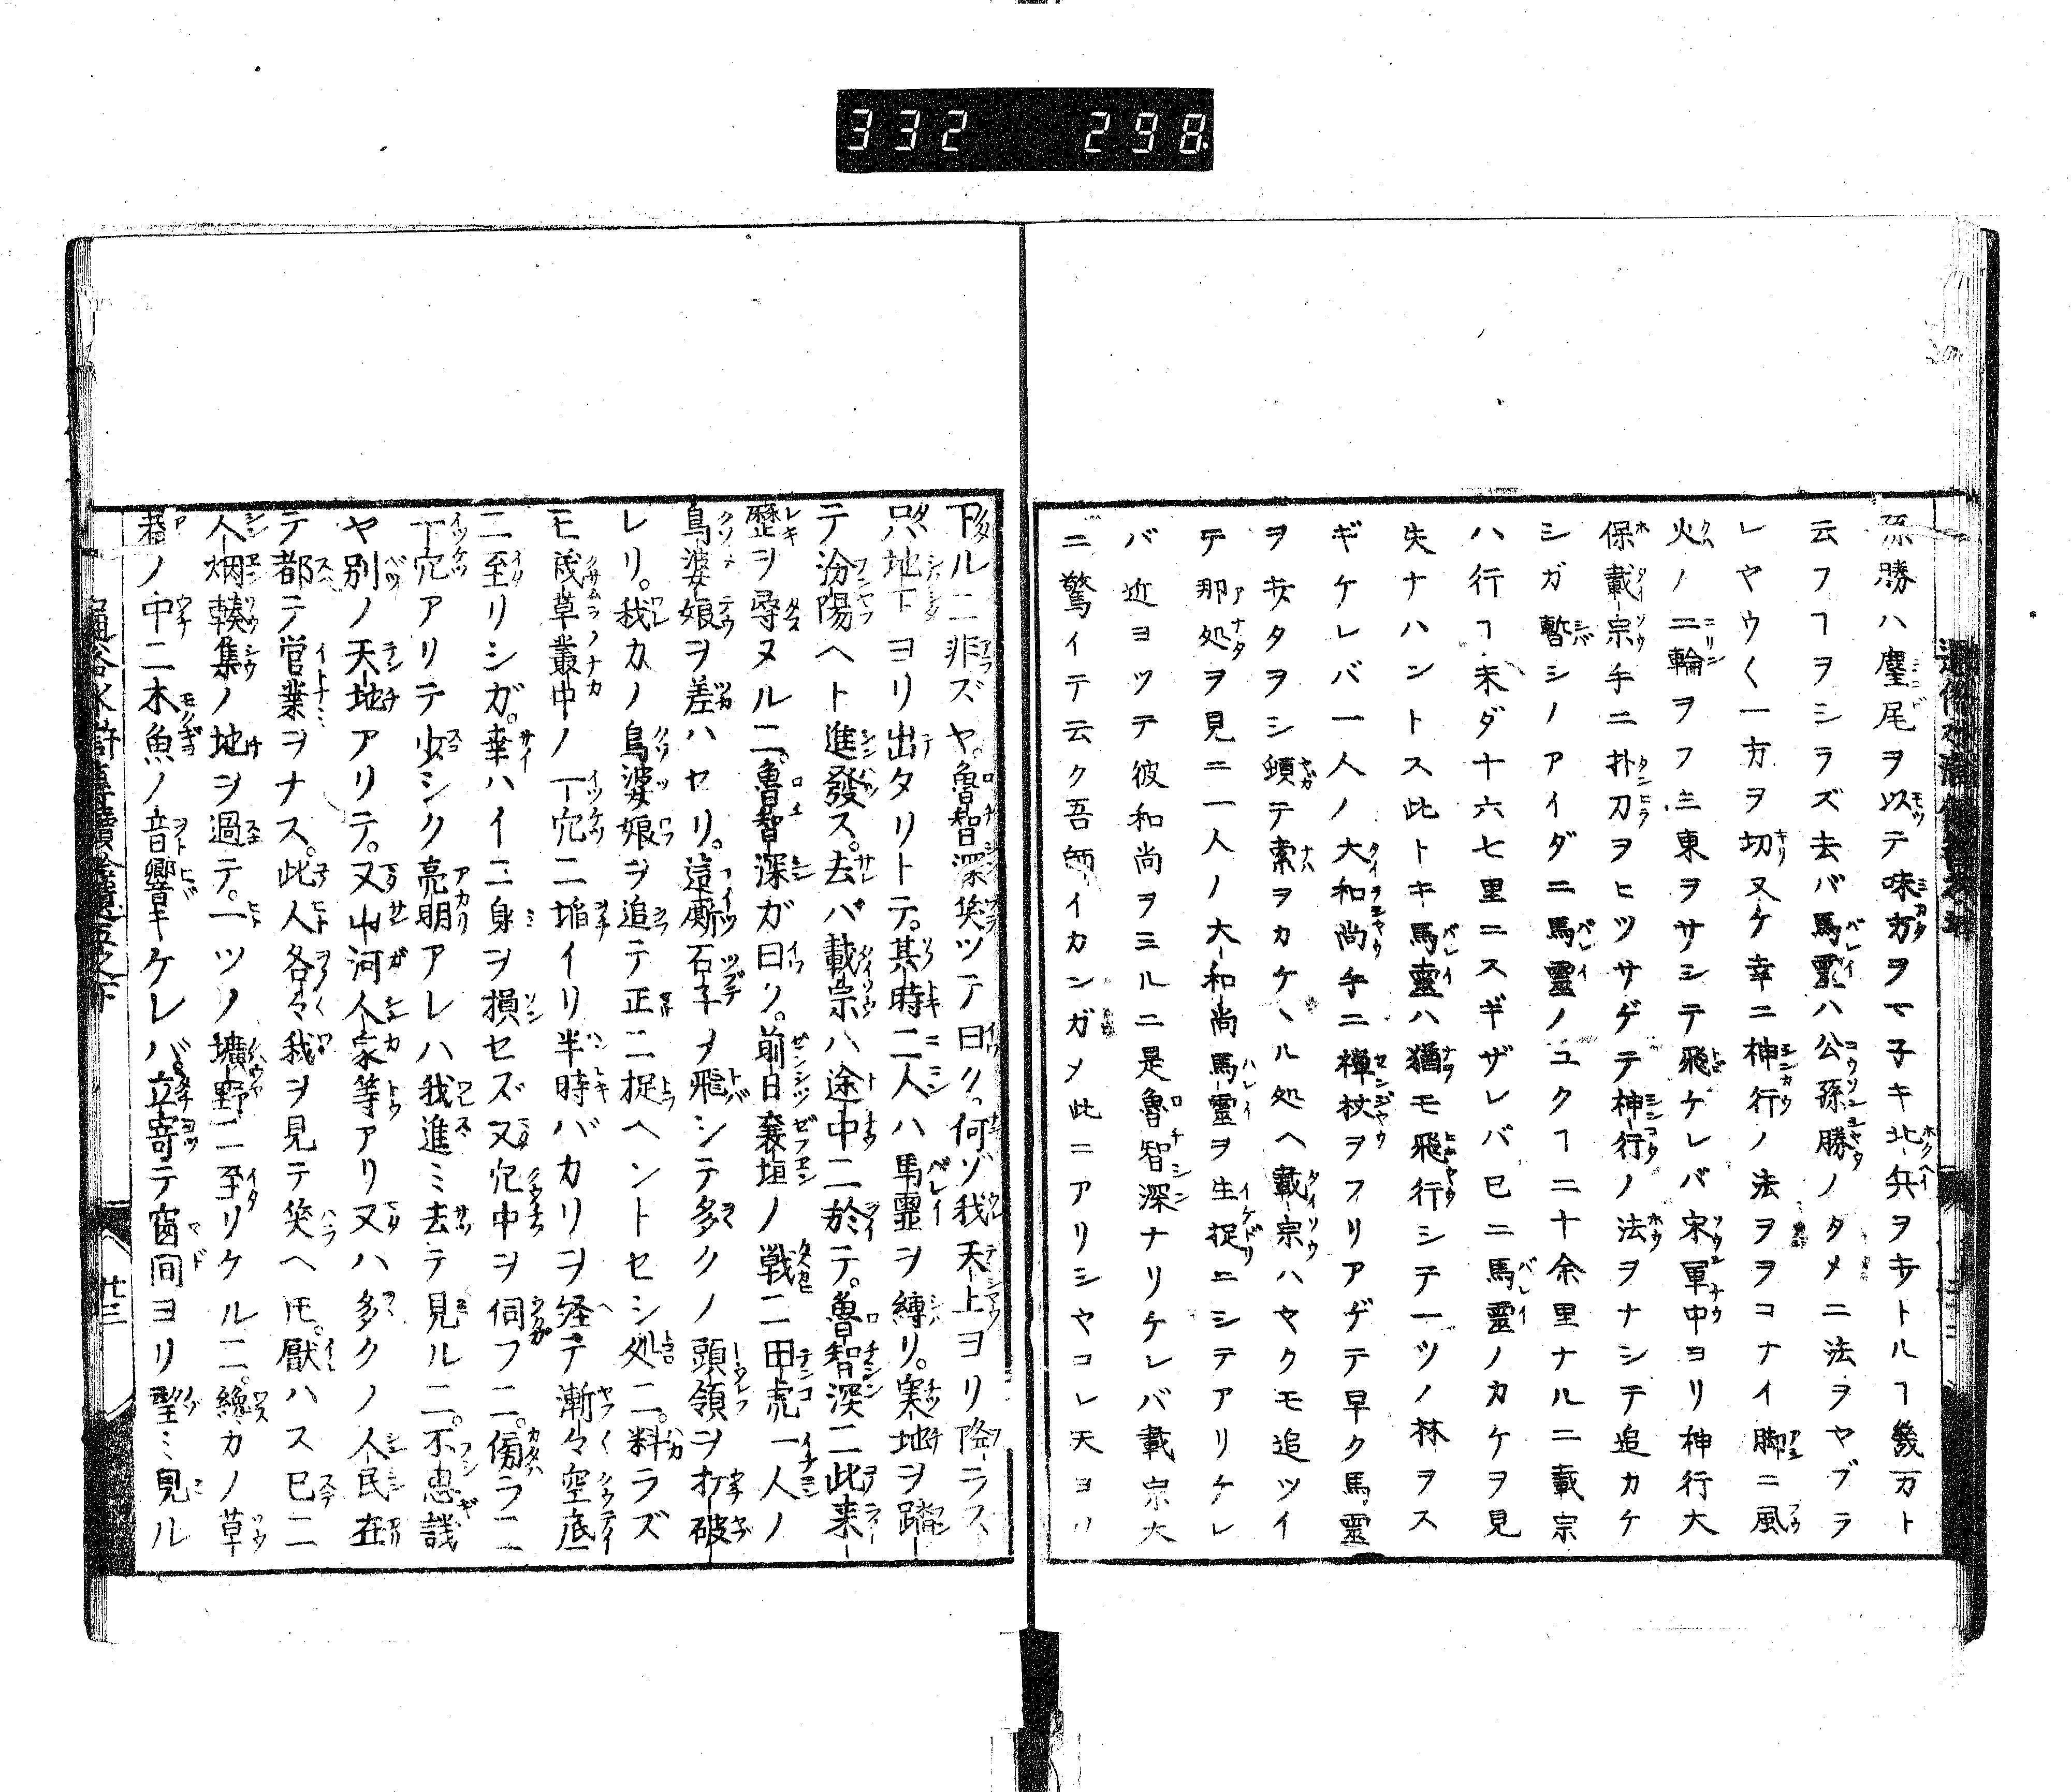 332 298
孫勝ハ麈尾ヲ以テ味方ヲマ子キ北兵ヲキトルヿ幾万ト
云フヿヲシラズ去バ馬靈ハ公孫勝ノタメニ法ヲヤブラ
レヤウ〱一方ヲ切又ケ幸ニ神行ノ法ヲヲコナイ脚ニ風
火ノ二輪ヲフミ東ヲサシテ飛ゲレバ宋軍中ヨリ神行大
保載宗手ニ朴刀ヲヒツサゲテ神行ノ法ヲナシテ追カケ
シガ暫シノアイダニ馬靈ノユクヿ二十余里ナルニ載宗
ハ行ヿ未ダ十六七里ニスギザレバ已ニ馬靈ノカケヲ見
失ナハントス此トキ馬靈ハ猶モ飛行シテ一ツノ林ヲス
ギケレバ一人ノ大和尚手ニ禅杖ヲフリアゲテ早ク馬靈
ヲ
タヲシ頓テ索ヲカケヽル処ヘ載宗ハヤクモ追ツイ
テ那処ヲ見ニ一人ノ大和尚馬靈ヲ生捉ニシテアリケレ
バ近ヨツテ彼和尚ヲミルニ是魯智深ナリケレバ載宗大
ニ驚イテ云ク吾師イカンガメ此ニアリシヤコレ天ヨリ
下ルニ非ズヤ。魯智深笑ツテ曰ク。何ゾ我天上ヨリ降ラス
只地下ヨリ出タリトテ。其時二人ハ馬靈ヲ縛リ。実地ヲ踏
テ汾陽ヘト進發ス。去バ載宗ハ途中ニ於テ。魯智深ニ此来
歴ヲ尋ヌルニ。魯智深ガ曰ク。前日襄垣ノ戦ニ田虎一人ノ
鳥婆娘ヲ差ハセリ。這厮石子ヲ飛シテ多クノ頭領ヲ打破
レリ。我カノ鳥婆娘ヲ追テ正ニ捉ヘントセシ処ニ。料ラズ
モ茂草叢中ノ一穴ニ陷イリ半時バカリヲ経テ漸々空底
ニ至リシガ。幸ハイニ身ヲ損セズ又穴中ヲ伺フニ。傍ラニ
一穴アリテ少シク亮明アレハ我進ミ去テ見ルニ。不思議
ヤ別ノ天地アリテ。又山河人家等アリ又ハ多クノ人民在
テ都テ営業ヲナス。此人各々我ヲ見テ笑ヘ𪜈。厭ハス已ニ
人烟輳集ノ地ヲ過テ。一ツノ壙野ニ至リケルニ。纔カノ草
菴ノ中ニ木魚ノ音響キケレバ。立寄テ窗間ヨリ望ミ見ル
廿三